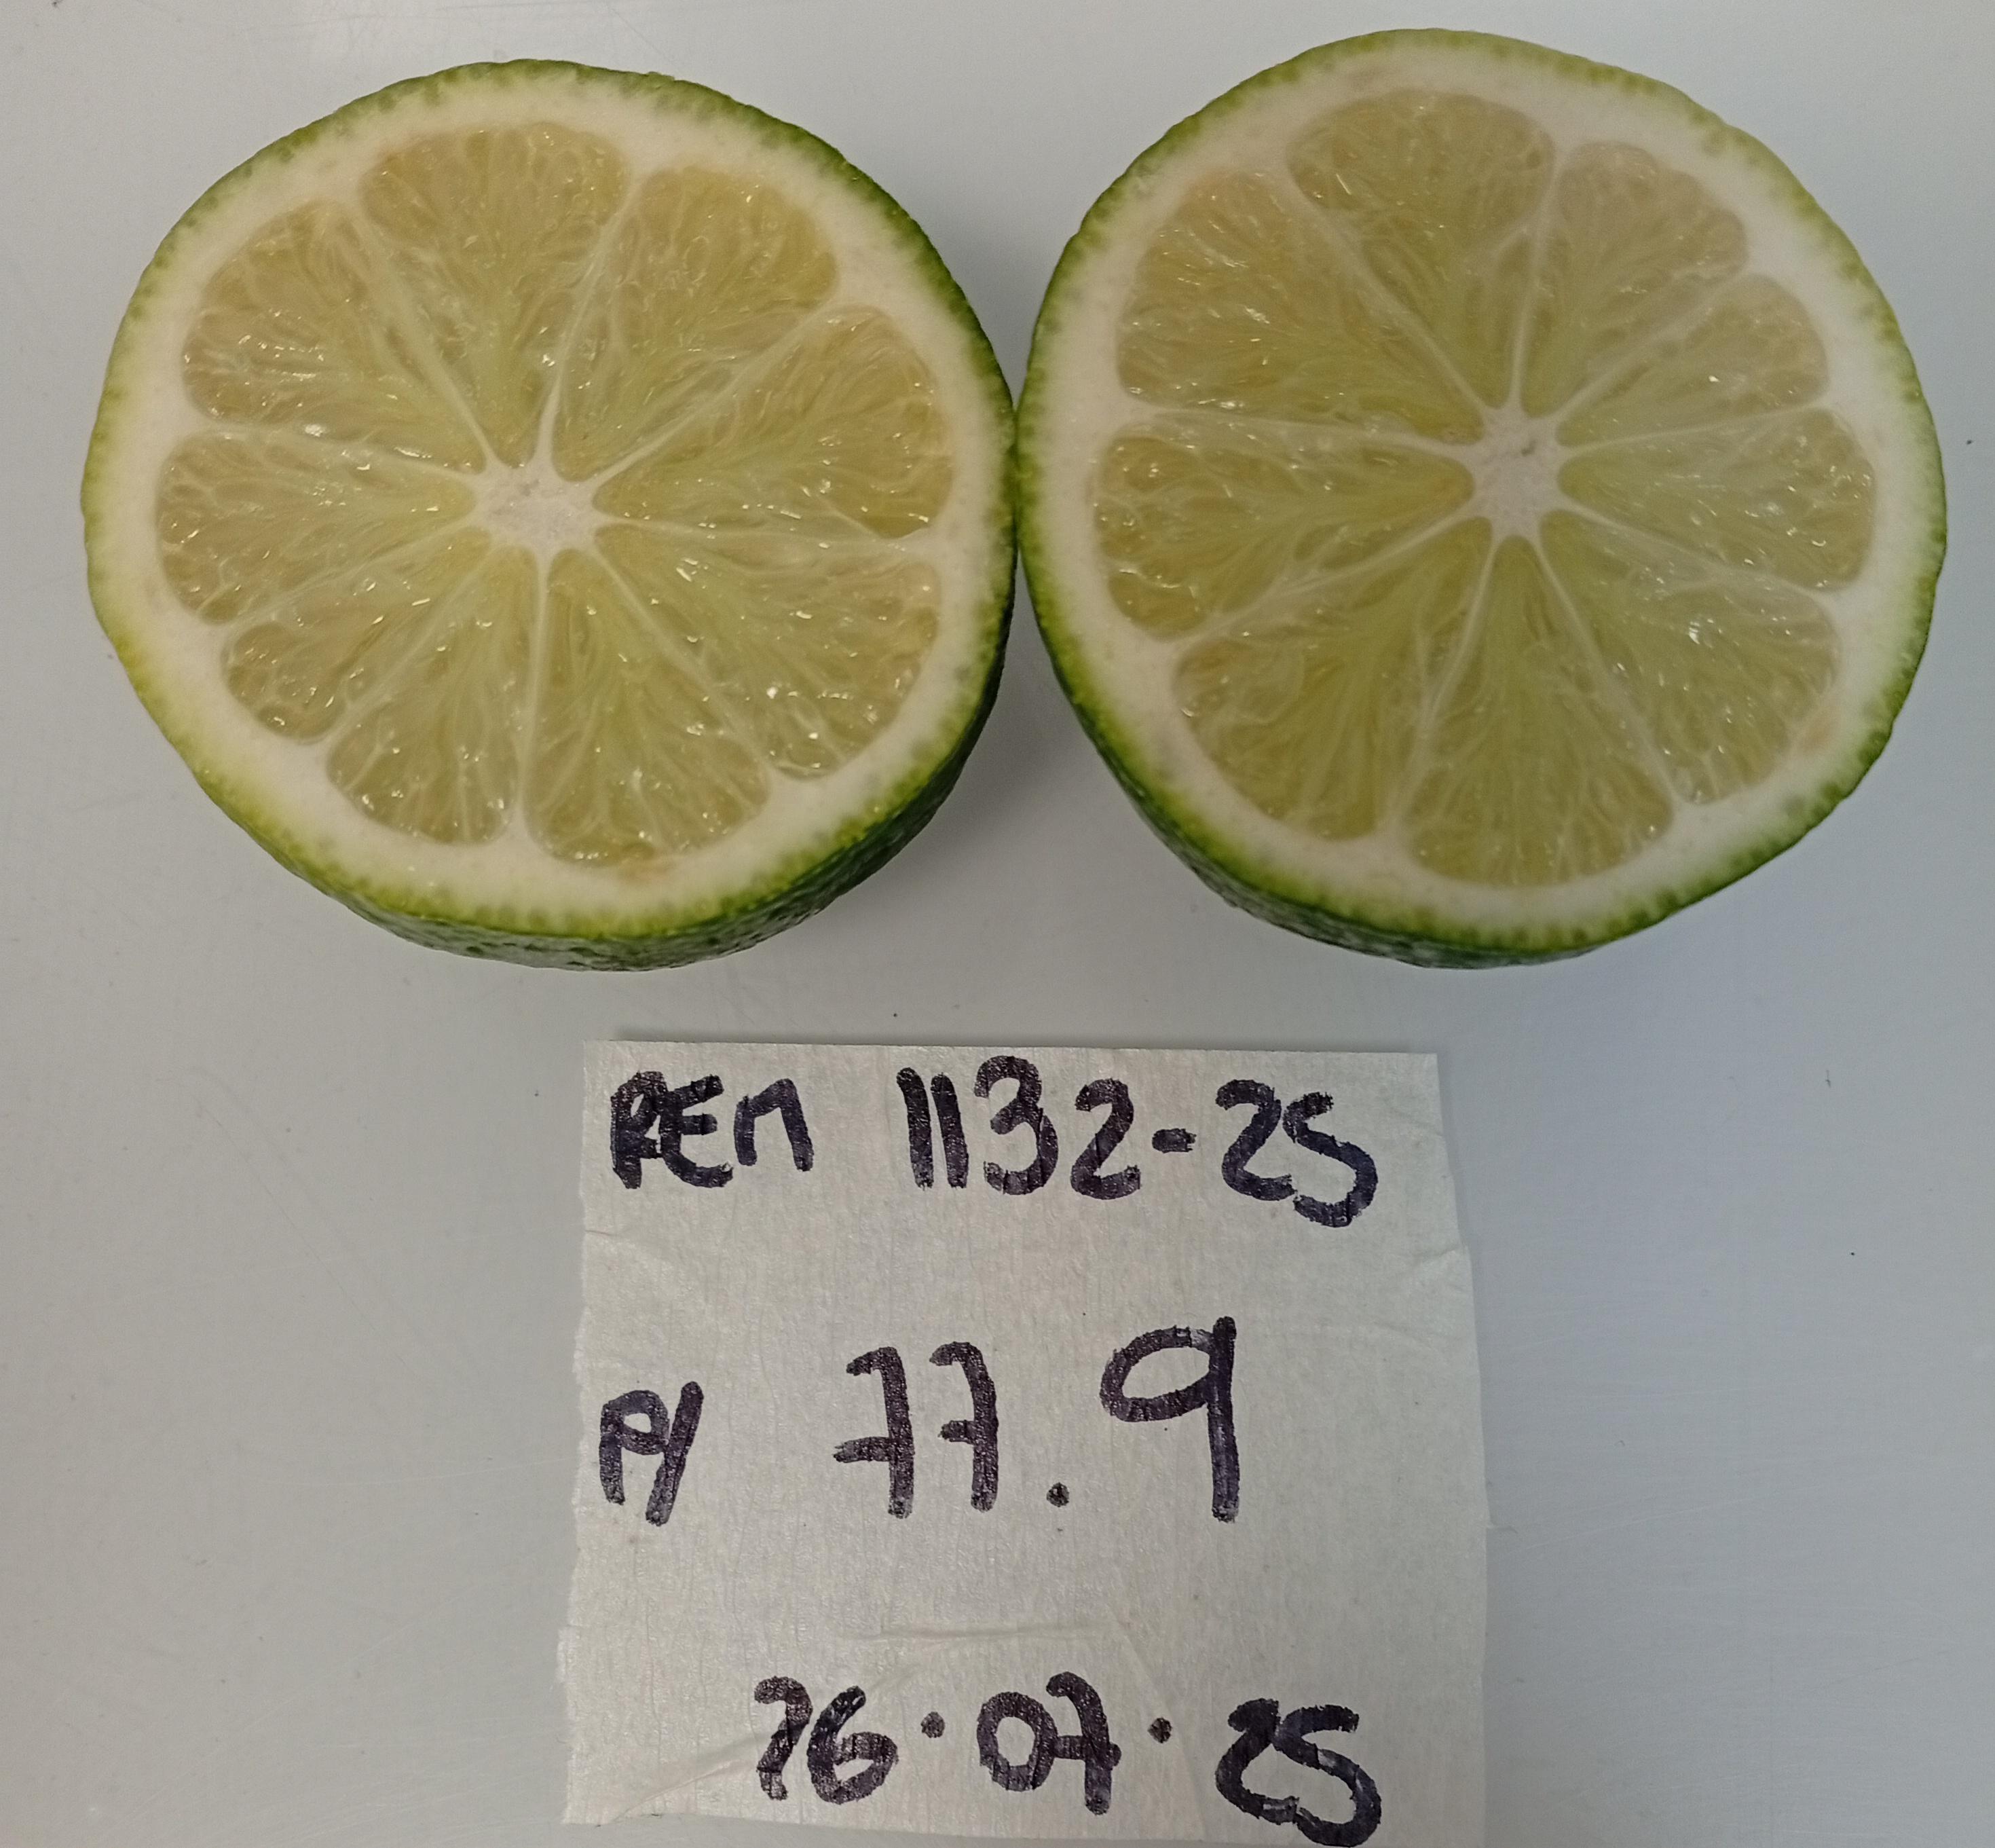 REM 1132-25
P/ 77.9
26.07.25